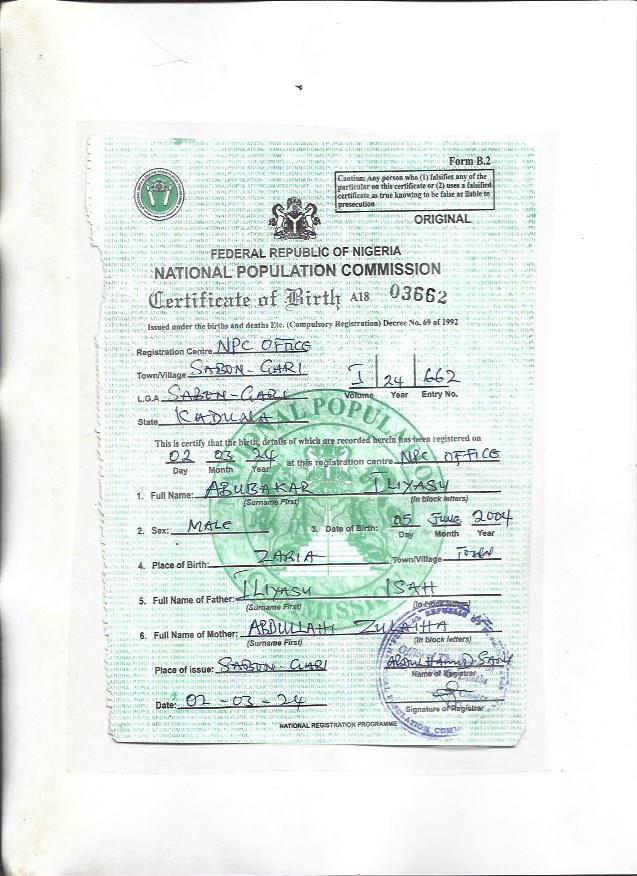 Form B.2
Caution: Any person who (1) falsifies any of the
particular on this certificate or (2) uses a falsified
certificate as true knowing to be false as liable to
prosecution
ORIGINAL
FEDERAL REPUBLIC OF NIGERIA
NATIONAL POPULATION COMMISSION
Certificate of Birth A18 03662
Issued under the births and deaths Etc. (Compulsory Registration) Decree No. 69 of 1992
Registration Centre NPC OFFICE
Town/Village SABON-GARI
I 24 662
L.G.A SABON-GARI Volume Year Entry No.
State KADUNA
This is certify that the birth, details of which are recorded herein has been registered on
02 03 24 at this registration centre NPC OFFICE
Day Month Year
1. Full Name: ABUBAKAR ILIYASU
(Surname First) (In block letters)
2. Sex: MALE 3. Date of Birth: 05 JUNE 2004
Day Month Year
4. Place of Birth: ZARIA Town/Village Town
5. Full Name of Father: ILIYASU ISAH
(Surname First) (In block letters)
6. Full Name of Mother: ABDULLAHI ZULAIHA
(Surname First) (In block letters)
Place of issue: SABON-GARI ABDULHAMID SANI
Name of Registrar
Date: 02-03-24 Signature of Registrar
NATIONAL REGISTRATION PROGRAMME